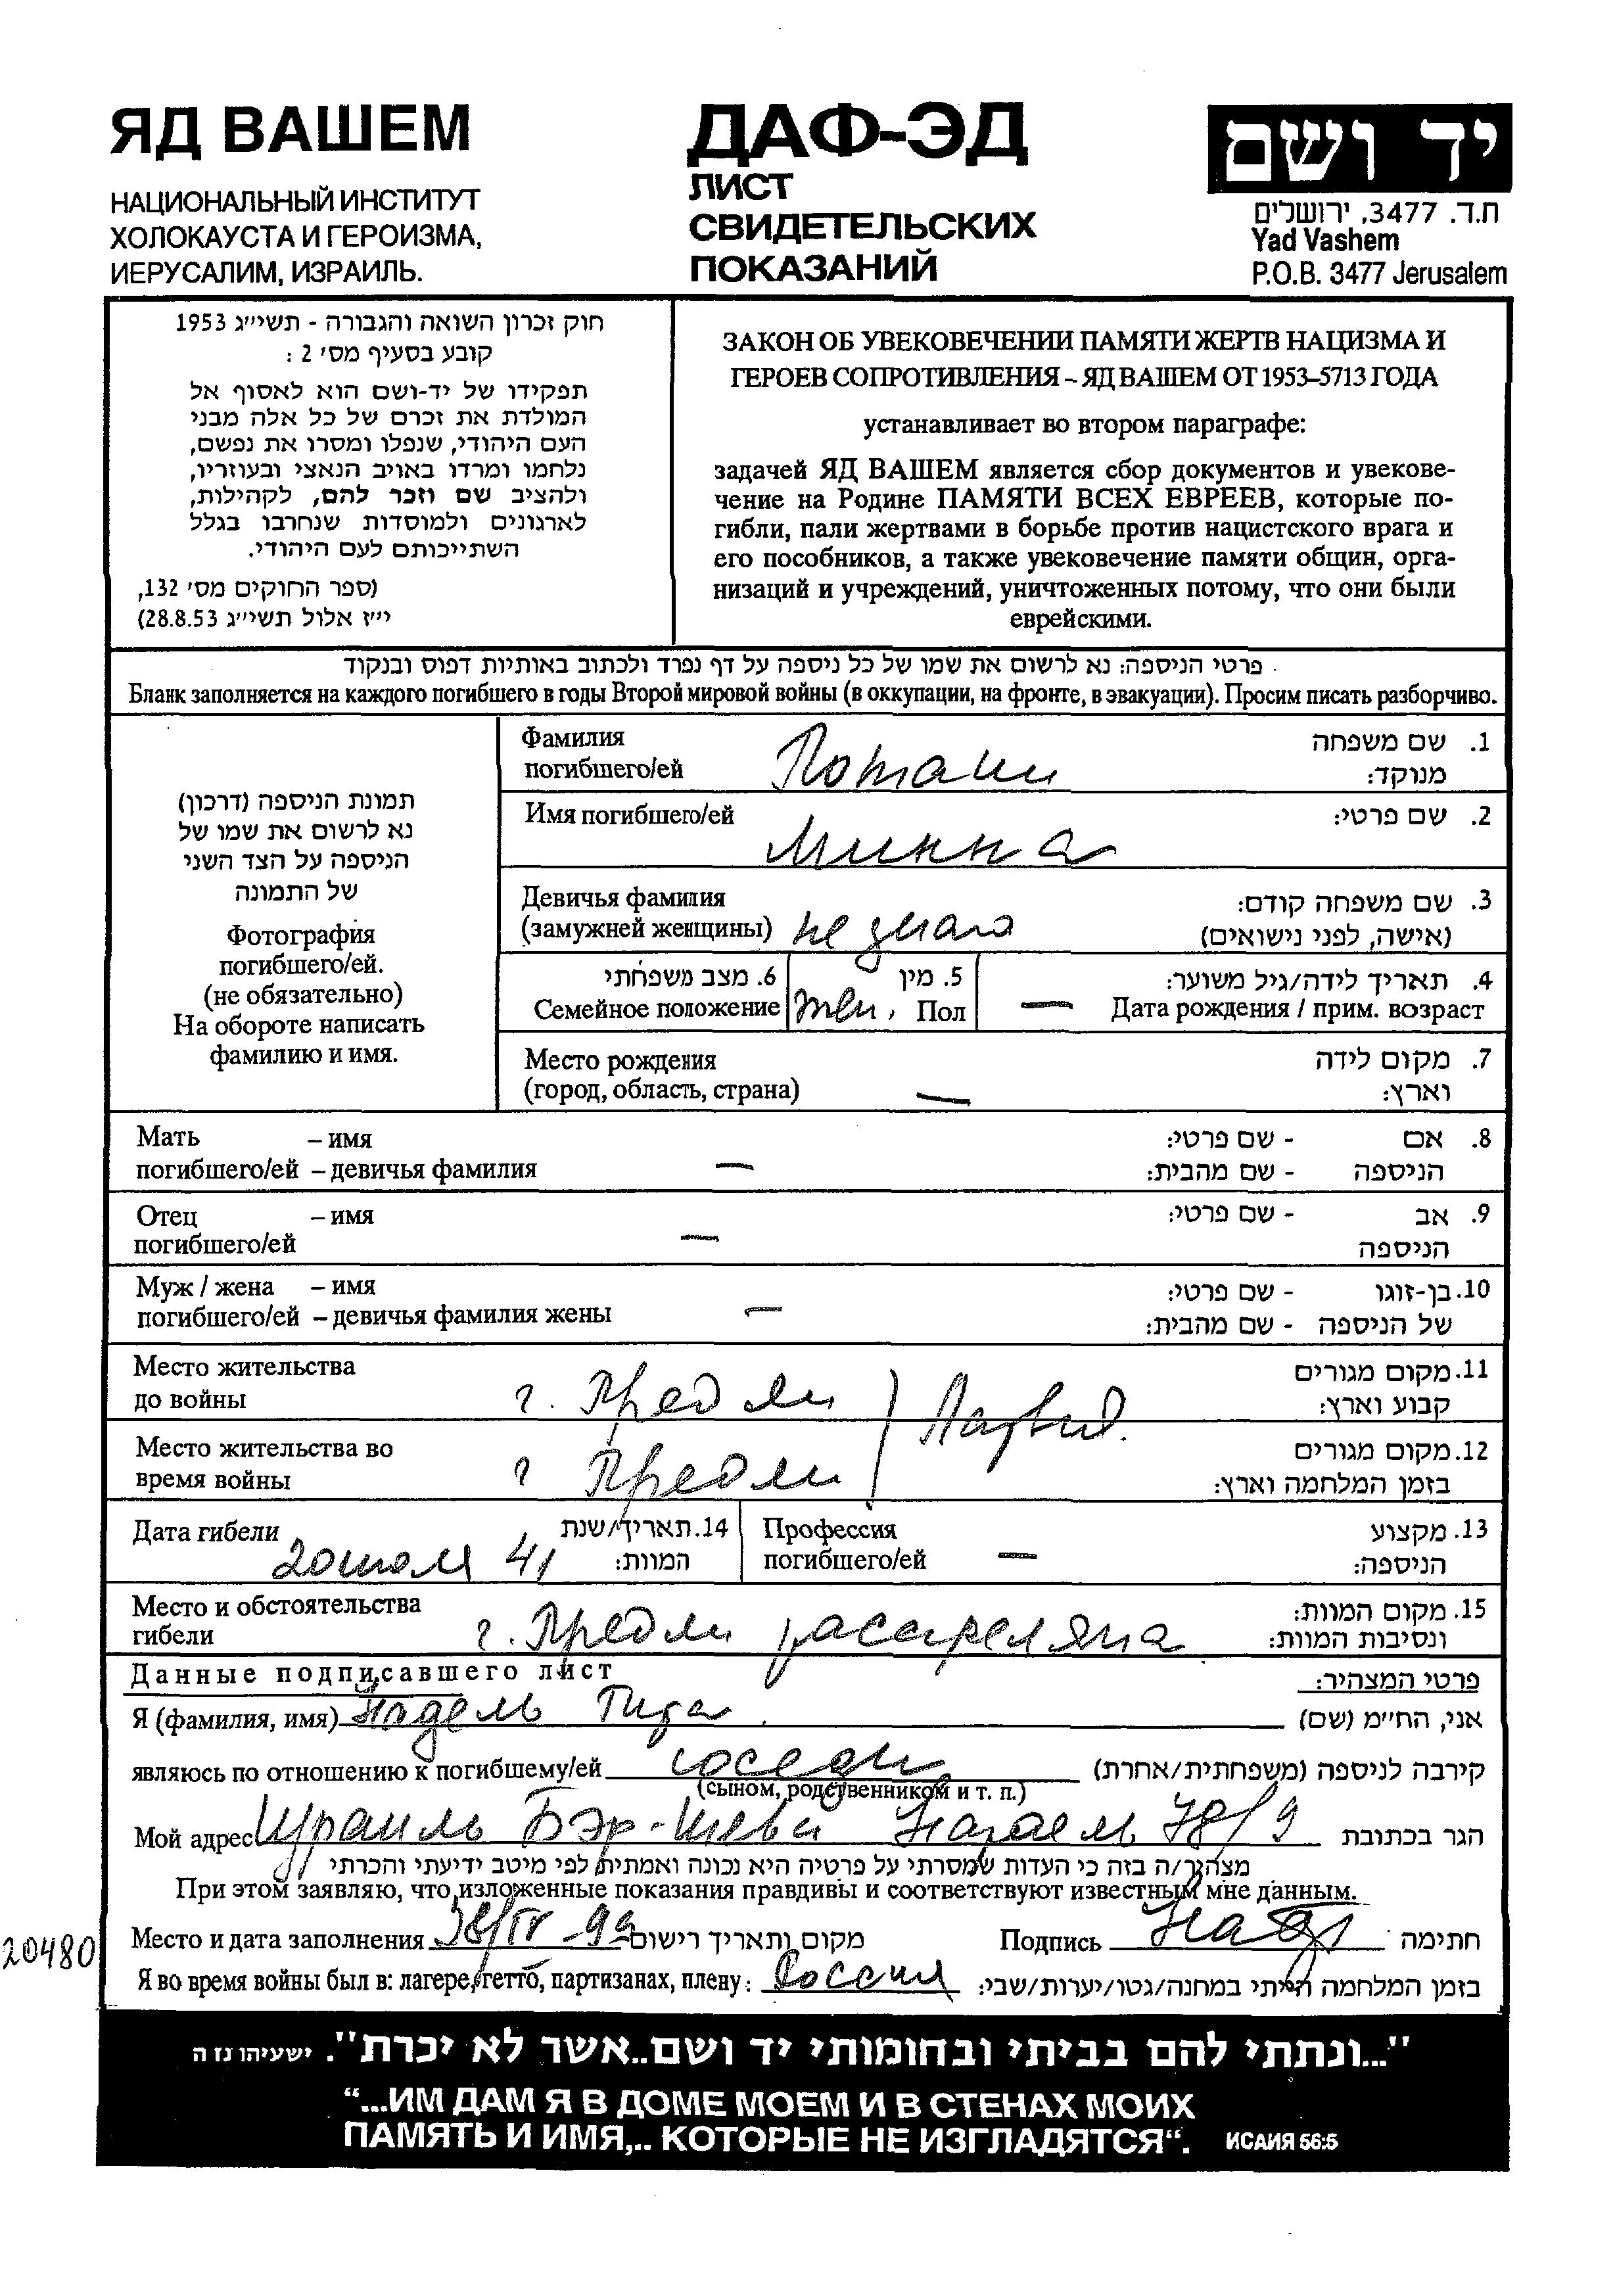 ЯД ВАШЕМ
НАЦИОНАЛЬНЫЙ ИНСТИТУТ
ХОЛОКАУСТА И ГЕРОИЗМА,
ИЕРУСАЛИМ, ИЗРАИЛЬ.
ДАФ-ЭД
ЛИСТ
СВИДЕТЕЛЬСКИХ
ПОКАЗАНИЙ
יד ושם
ת.ד. 3477, ירושלים
Yad Vashem
P.O.B. 3477 Jerusalem
חוק זכרון השואה והגבורה - תשי״ג 1953
קובע בסעיף מס׳ 2 :
תפקידו של יד-ושם הוא לאסוף אל
המולדת את זכרם של כל אלה מבני
העם היהודי, שנפלו ומסרו את נפשם,
נלחמו ומרדו באויב הנאצי ובעוזריו,
ולהציב שם וזכר להם, לקהילות,
לארגונים ולמוסדות שנחרבו בגלל
השתייכותם לעם היהודי.
(ספר החוקים מס׳ 132,
י״ז אלול תשי״ג 28.8.53)
ЗАКОН ОБ УВЕКОВЕЧЕНИИ ПАМЯТИ ЖЕРТВ НАЦИЗМА И
ГЕРОЕВ СОПРОТИВЛЕНИЯ – ЯД ВАШЕМ ОТ 1953–5713 ГОДА
устанавливает во втором параграфе:
задачей ЯД ВАШЕМ является сбор документов и увекове-
чение на Родине ПАМЯТИ ВСЕХ ЕВРЕЕВ, которые по-
гибли, пали жертвами в борьбе против нацистского врага и
его пособников, а также увековечение памяти общин, орга-
низаций и учреждений, уничтоженных потому, что они были
еврейскими.
פרטי הניספה: נא לרשום את שמו של כל ניספה על דף נפרד ולכתוב באותיות דפוס ובנקוד
Бланк заполняется на каждого погибшего в годы Второй мировой войны (в оккупации, на фронте, в эвакуации). Просим писать разборчиво.
תמונת הניספה (דרכון)
נא לרשום את שמו של
הניספה על הצד השני
של התמונה
Фотография
погибшего/ей.
(не обязательно)
На обороте написать
фамилию и имя.
Фамилия 1. שם משפחה
погибшего/ей מנוקד:
Имя погибшего/ей Минна 2. שם פרטי:
Девичья фамилия 3. שם משפחה קודם:
(замужней женщины) не знаю (אישה, לפני נישואים)
6. מצב משפחתי 5. מין 4. תאריך לידה/גיל משוער:
Семейное положение жен. Пол — Дата рождения / прим. возраст
Место рождения 7. מקום לידה
(город, область, страна) — וארץ:
Мать – имя - שם פרטי: 8. אם
погибшего/ей – девичья фамилия — - שם מהבית: הניספה
Отец – имя - שם פרטי: 9. אב
погибшего/ей — הניספה
Муж / жена – имя - שם פרטי: 10. בן-זוגו
погибшего/ей – девичья фамилия жены — - שם מהבית: של הניספה
Место жительства 11. מקום מגורים
до войны г. Прейли קבוע וארץ:
Латвия.
Место жительства во 12. מקום מגורים
время войны г Прейли בזמן המלחמה וארץ:
Дата гибели 14. תאריך/שנת Профессия 13. מקצוע
41 המוות: погибшего/ей — הניספה:
Место и обстоятельства 15. מקום המוות:
гибели г. Прейли расстреляна ונסיבות המוות:
Данные подписавшего лист פרטי המצהיר:
Я (фамилия, имя) Надель Гита אני, הח״מ (שם)
являюсь по отношению к погибшему/ей соседи קירבה לניספה (משפחתית/אחרת)
(сыном, родственником и т. п.)
Мой адрес Израиль Бэр-Шева 78/9 הגר בכתובת
מצהיר/ה בזה כי העדות שמסרתי על פרטיה היא נכונה ואמתית לפי מיטב ידיעתי והכרתי
При этом заявляю, что изложенные показания правдивы и соответствуют известным мне данным.
Место и дата заполнения IV-99 מקום ותאריך רישום Подпись חתימה
20480
Я во время войны был в: лагере, гетто, партизанах, плену: Россия בזמן המלחמה הייתי במחנה/גטו/יערות/שבי:
"...ונתתי להם בביתי ובחומותי יד ושם..אשר לא יכרת". ישעיהו נז ה
“...ИМ ДАМ Я В ДОМЕ МОЕМ И В СТЕНАХ МОИХ
ПАМЯТЬ И ИМЯ,.. КОТОРЫЕ НЕ ИЗГЛАДЯТСЯ“. ИСАИЯ 56:5